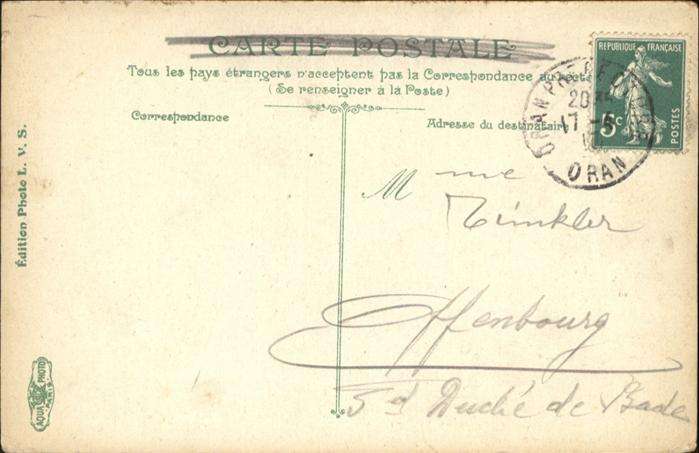 CARTE POSTALE
Tous les pays étrangers n'acceptent pas la Correspondance au recto
(Se renseigner à la Poste)
Correspondance
Adresse du destinataire
RÉPUBLIQUE FRANÇAISE
5c
POSTES
ORAN
20
17
ORAN
M me
Tinkler
Offenbourg
Gd Duché de Bade
Édition Photo L. V. S.
AQUA PHOTO
PARIS